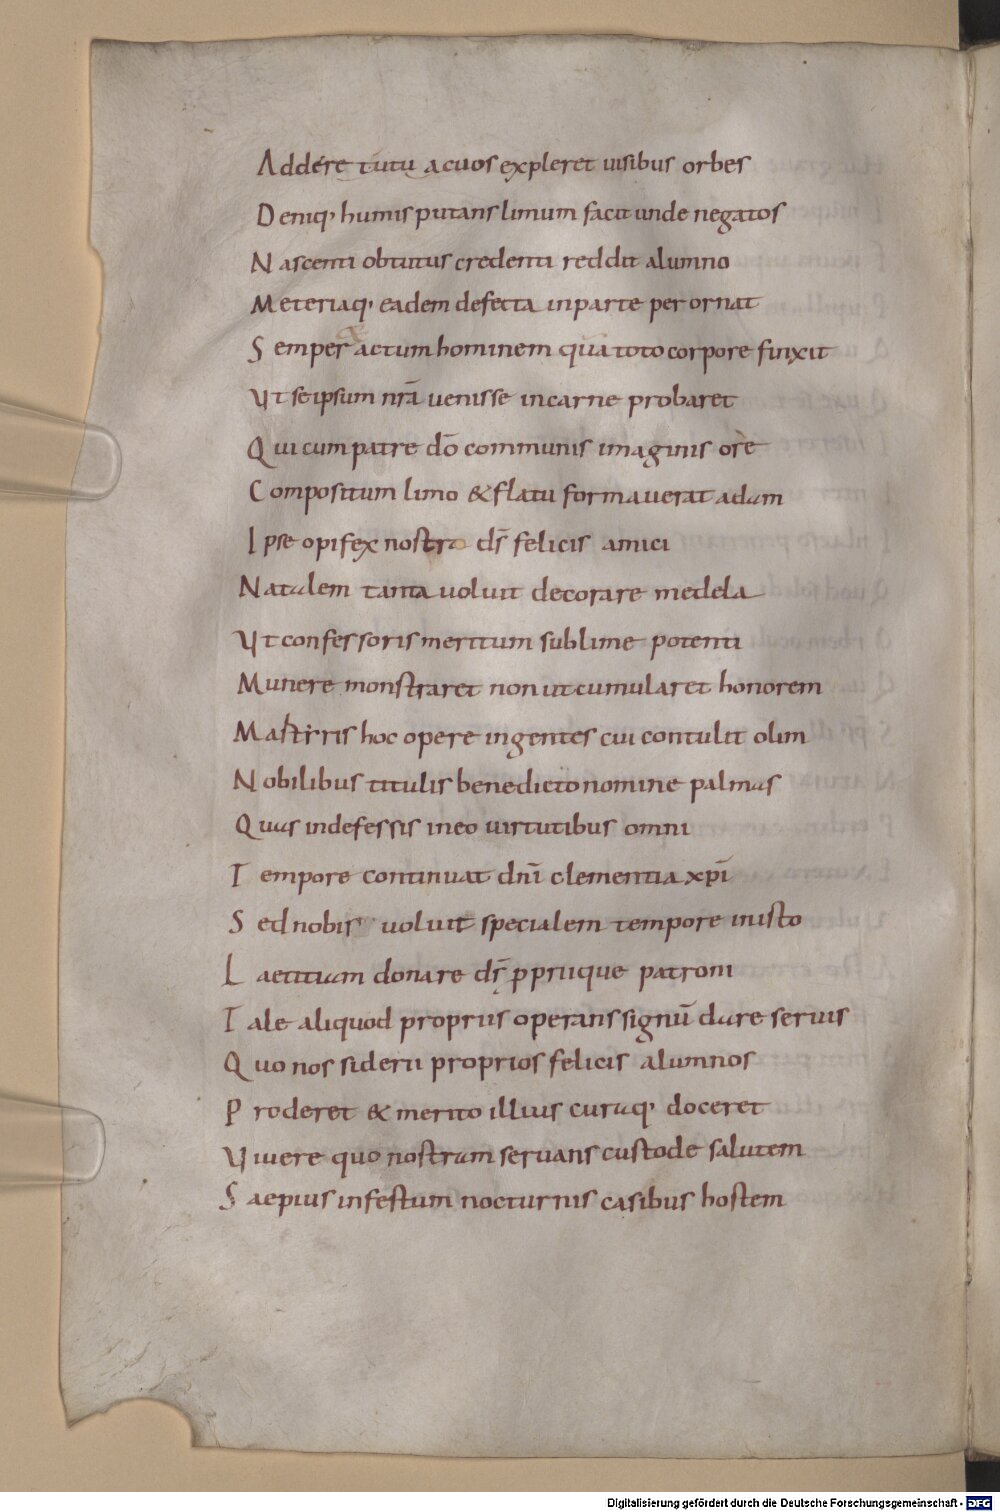 Addere tutu acuos expleret uisibus orbes
Deniq; humis putans limum facit unde negatos
Nascenti obtutus credenti reddit alumno
Meteriaq; eadem defecta inparte per ornat
Semper actum hominem qua toto corpore finxit
Ut se ipsum nrā uenisse in carne probaret
Qui cum patre dō communis imaginis ore
Compositum limo & flatu formauerat adam
Ipse opifex nostra ds̄ felicis amici
Natalem tanta uoluit decorare medela
Ut confessoris meritum sublime potenti
Munere monstraret non ut cumularet honorem
Martiris hoc opere ingentes cui contulit olim
Nobilibus titulis benedicto nomine palmas
Quas indefessis in eo uirtutibus omni
Tempore continuat dnī clementia xpī
Sed nobis uoluit specialem tempore in isto
Laetitiam donare ds̄ ꝓpriique patroni
Tale aliquod propriis operans signū dare seruis
Quo nos siderii proprios felicis alumnos
Proderet & merito illius curaq; doceret
Uiuere quo nostram seruans custode salutem
Saepius infestum nocturnis casibus hostem
Digitalisierung gefördert durch die Deutsche Forschungsgemeinschaft - DFG